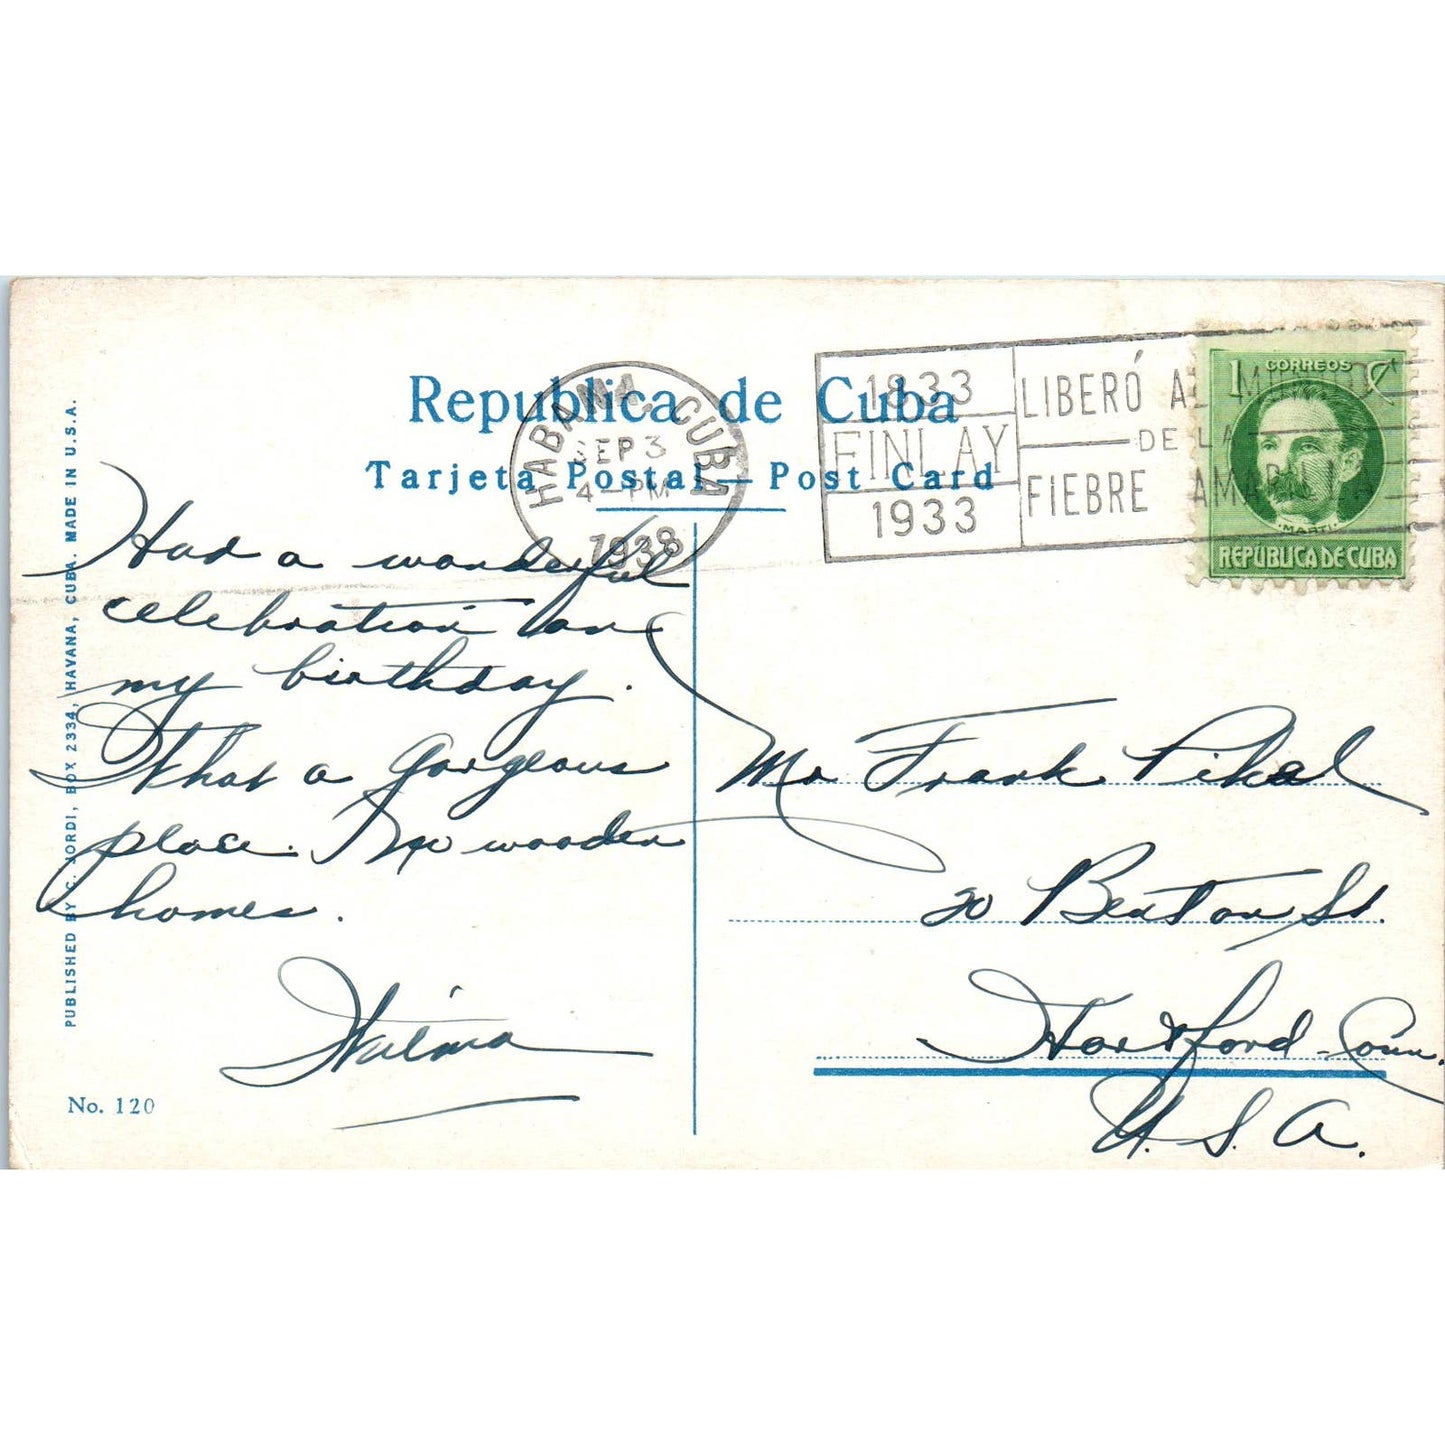 República de Cuba
Tarjeta Postal — Post Card
HABANA, CUBA
SEP 3
4-PM
1938
1833
FINLAY
1933
LIBERÓ AL MUNDO
DE LA
FIEBRE AMARILLA
1 CORREOS ¢
MARTI
REPUBLICA DE CUBA
PUBLISHED BY C. JORDI, BOX 2334, HAVANA, CUBA. MADE IN U.S.A.
Had a wonderful
celebration on
my birthday.
What a gorgeous
place. No wooden
homes.
Wilma
Mr Frank Pikal
20 Benton St.
Hartford Conn.
U.S.A.
No. 120